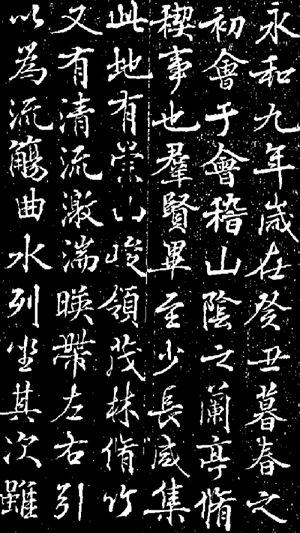 永和九年歲在癸丑暮春之
初會于會稽山陰之蘭亭脩
稧事也羣賢畢至少長咸集
此地有崇山峻領茂林脩竹
又有清流激湍暎帶左右引
以為流觴曲水列坐其次雖